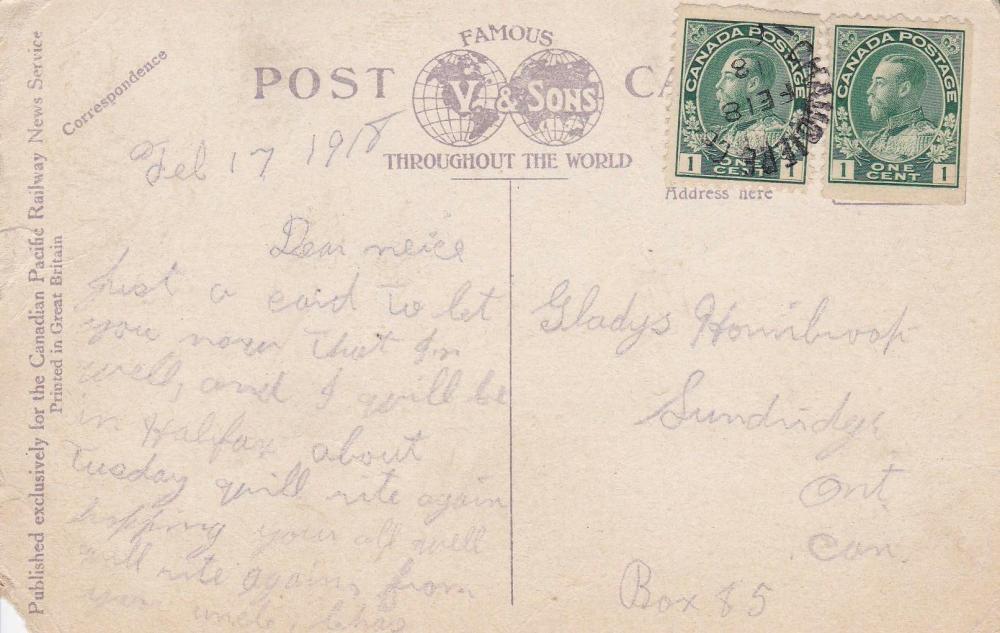 Published exclusively for the Canadian Pacific Railway News Service
Printed in Great Britain
Correspondence
FAMOUS
POST CA
V. & SONS
THROUGHOUT THE WORLD
CANADA POSTAGE
1 ONE CENT 1
CANADA POSTAGE
1 ONE CENT 1
18
FE 18
Address here
Feb 17 1918
Dear neice
Just a card to let
you now that Im
well, and I will be
in Halifax about
Tuesday will rite again
hopping your all well
will rite again, from
your uncle, Chas
Gladys Hornibrook
Sundridge
Ont
Can
Box 85